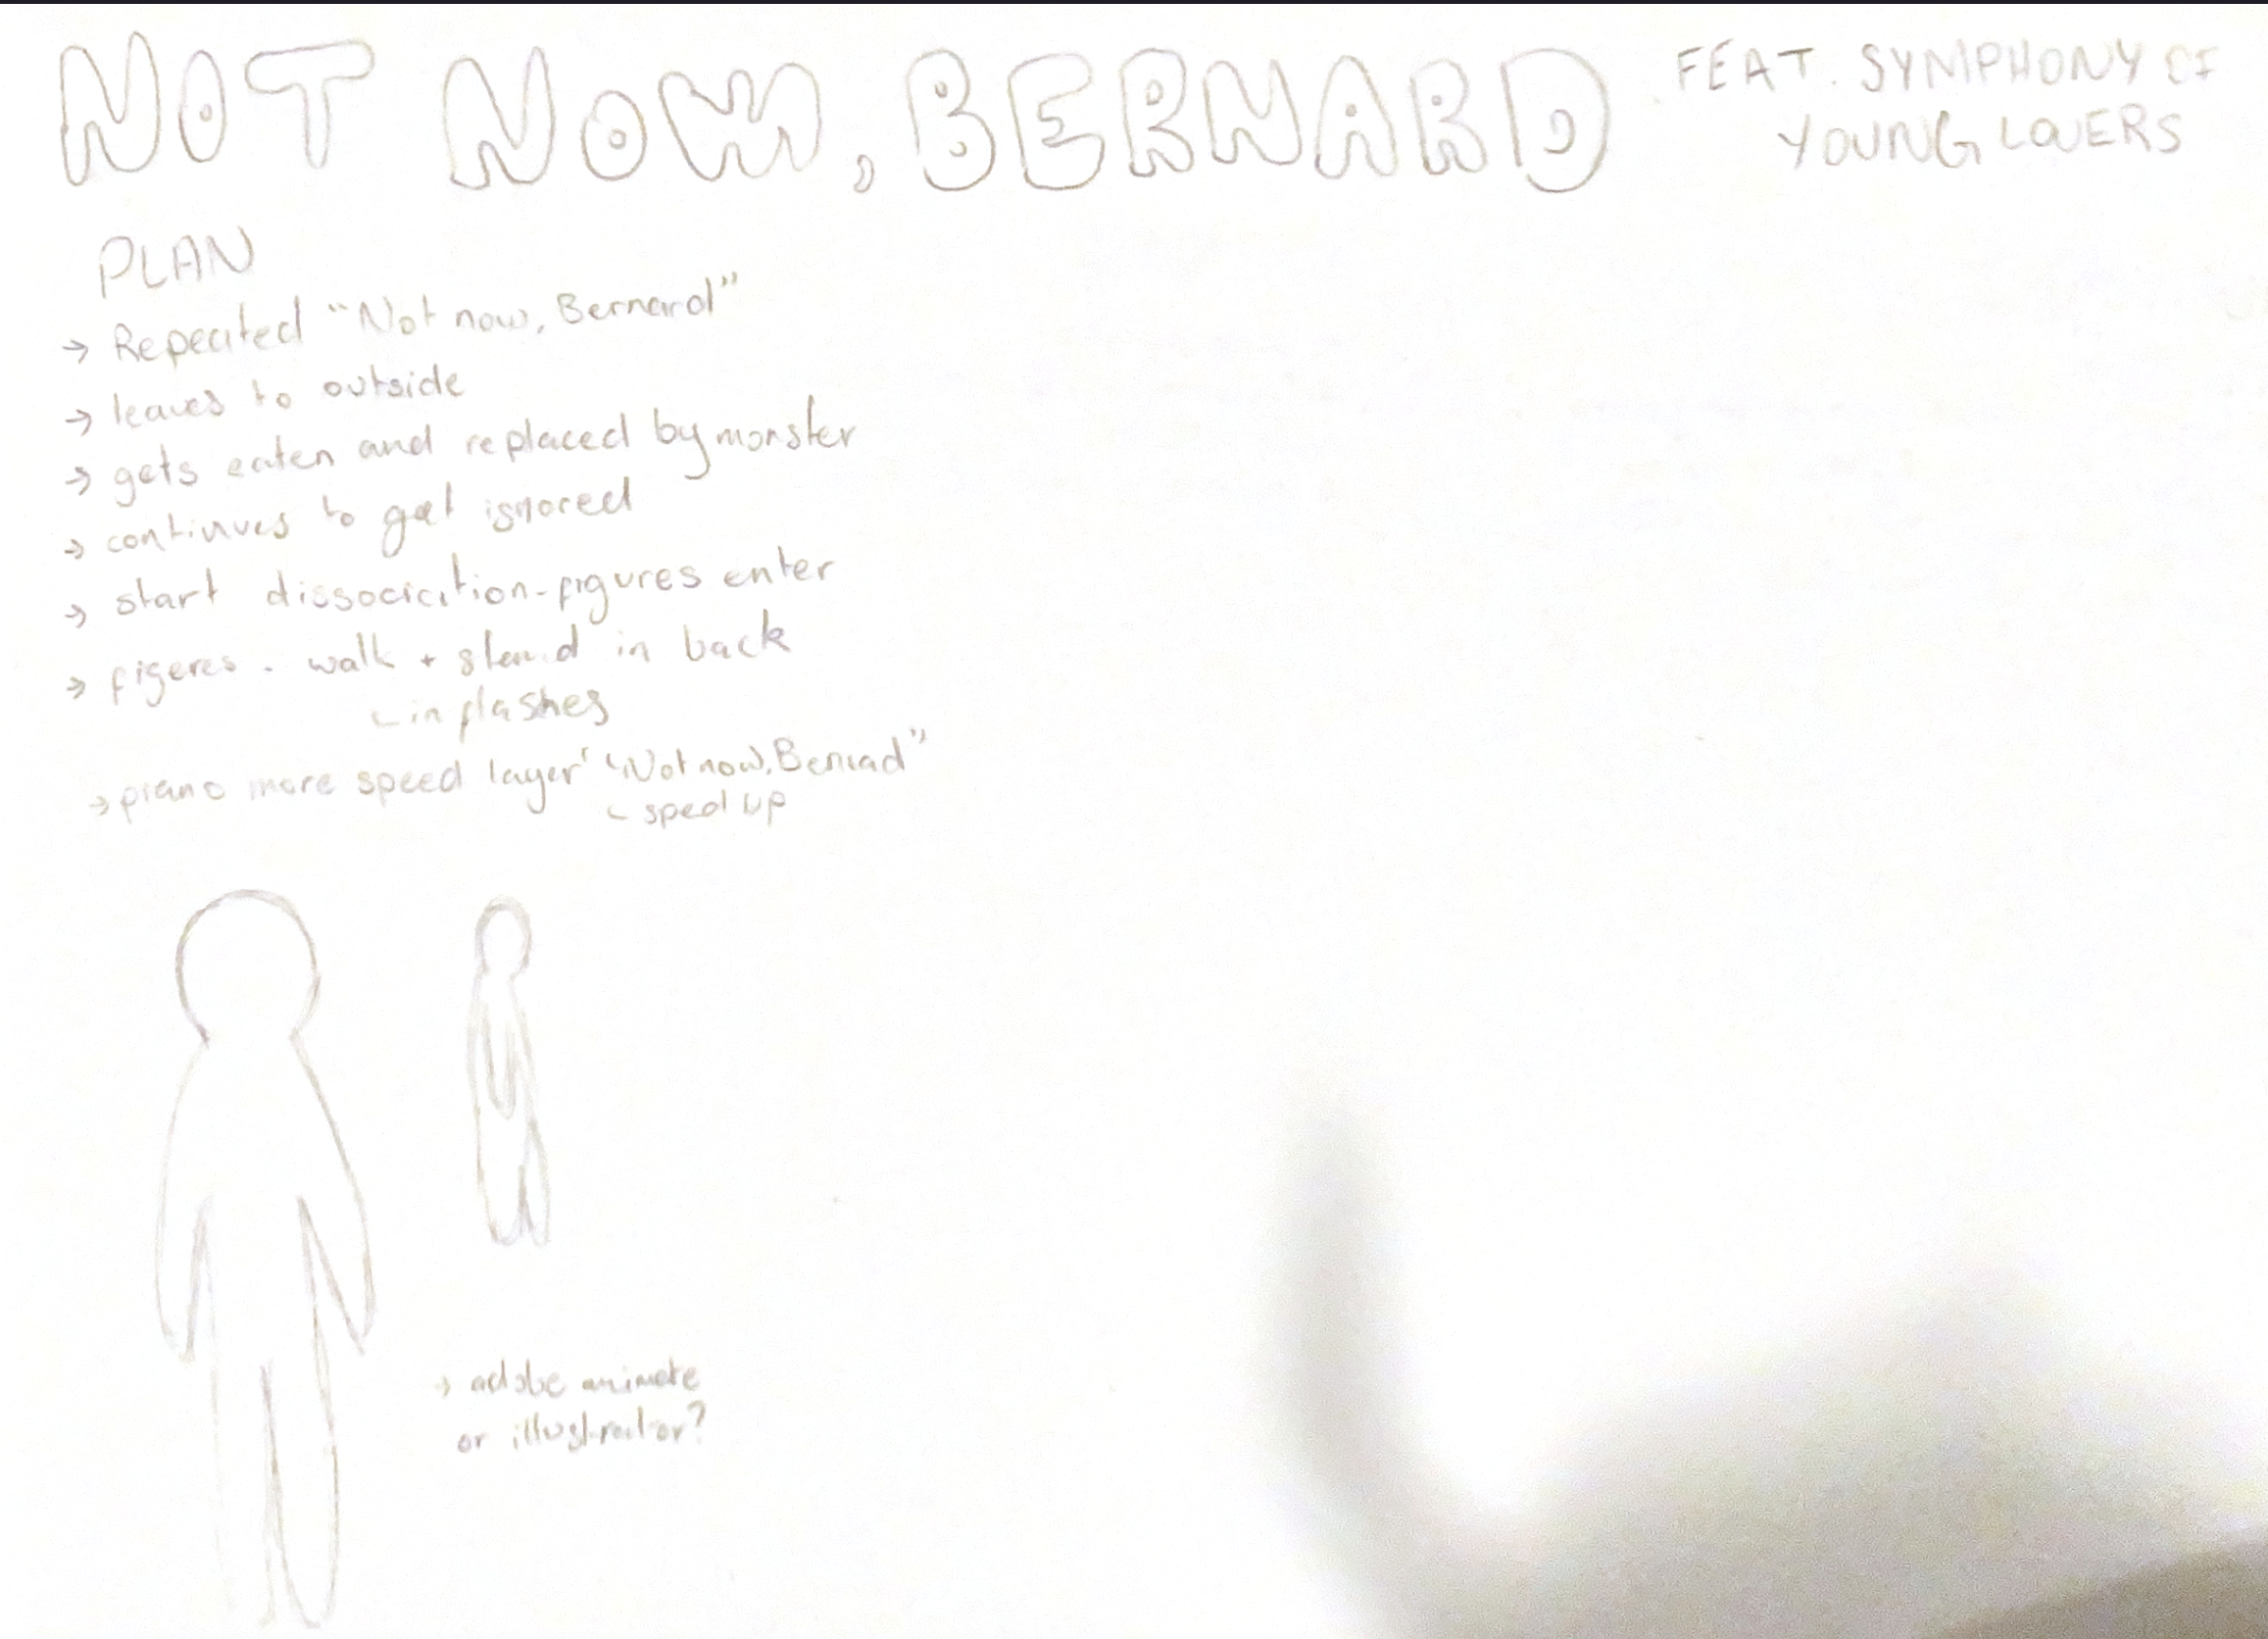 NOT NOW, BERNARD
FEAT. SYMPHONY OF
YOUNG LOVERS
PLAN
→ Repeated "Not now, Bernard"
→ leaves to outside
→ gets eaten and replaced by monster
→ continues to get ignored
→ start dissociation - figures enter
→ figeres - walk + stand in back
in flashes
→ piano more speed layer "Not now, Benrad"
sped up
→ adobe animate
or illustrator?